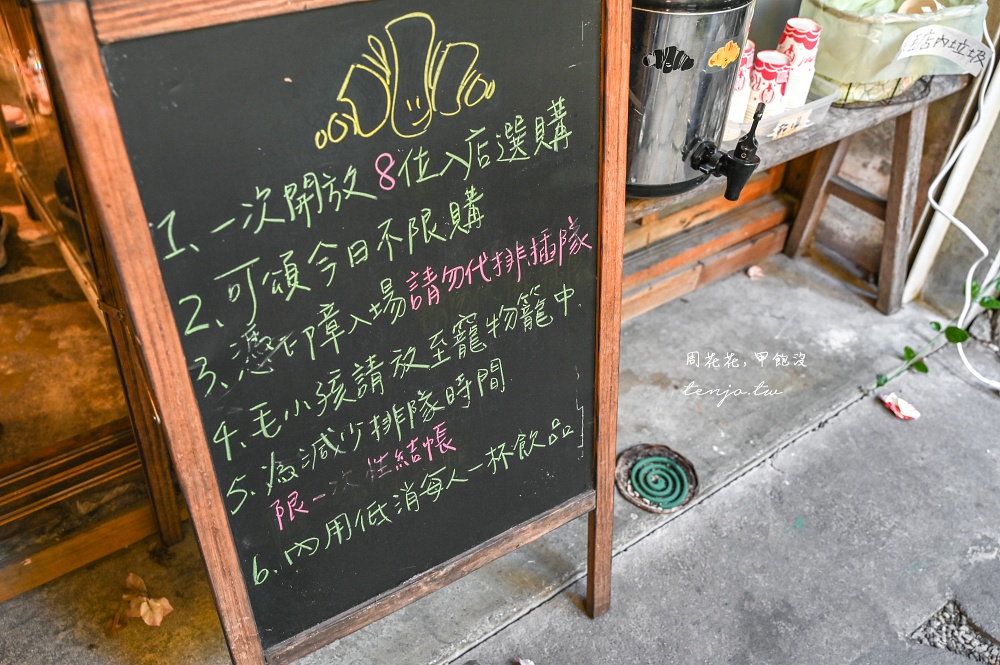 1、一次開放8位入店選購
2、可頌今日不限購
3、憑卡障入場請勿代排插隊
4、毛小孩請放至寵物籠中
5、為減少排隊時間
限一次性結帳
6、內用低消每人一杯飲品
店內垃圾
周花花,甲飽沒
tenjo.tw